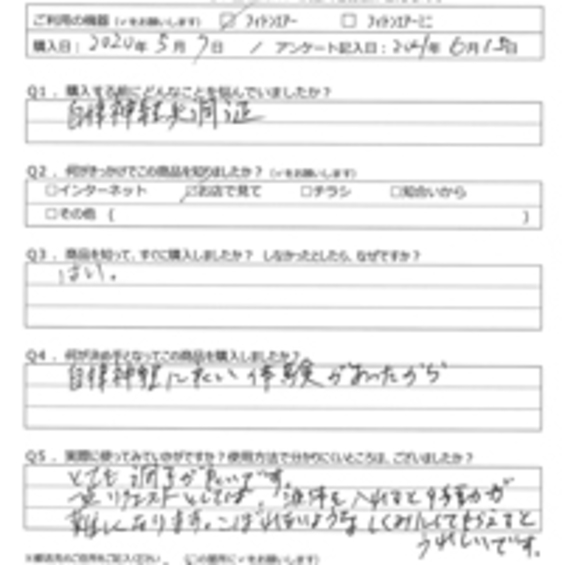 ご利用の機器（✓をお願いします） ☑ フィトンエアー □ フィトンエアーミニ
購入日：2020年 5月 7日 / アンケート記入日：2021年 6月15日
Q1．購入する前にどんなことを悩んでいましたか？
自律神経失調証
Q2．何がきっかけでこの商品を知りましたか？（✓をお願いします）
□インターネット ☑お店で見て □チラシ □知合いから
□その他（ ）
Q3．商品を知って、すぐに購入しましたか？ しなかったとしたら、なぜですか？
はい。
Q4．何が決め手となってこの商品を購入しましたか？
自律神経に良い体験があったから
Q5．実際に使ってみていかがですか？使用方法で分かりにくいところは、ございましたか？
とても調子が良いです。
一点リクエストとしては、液体を入れると移動が
難しくなります。こぼれないようなしくみにしてもらえると
うれしいです。